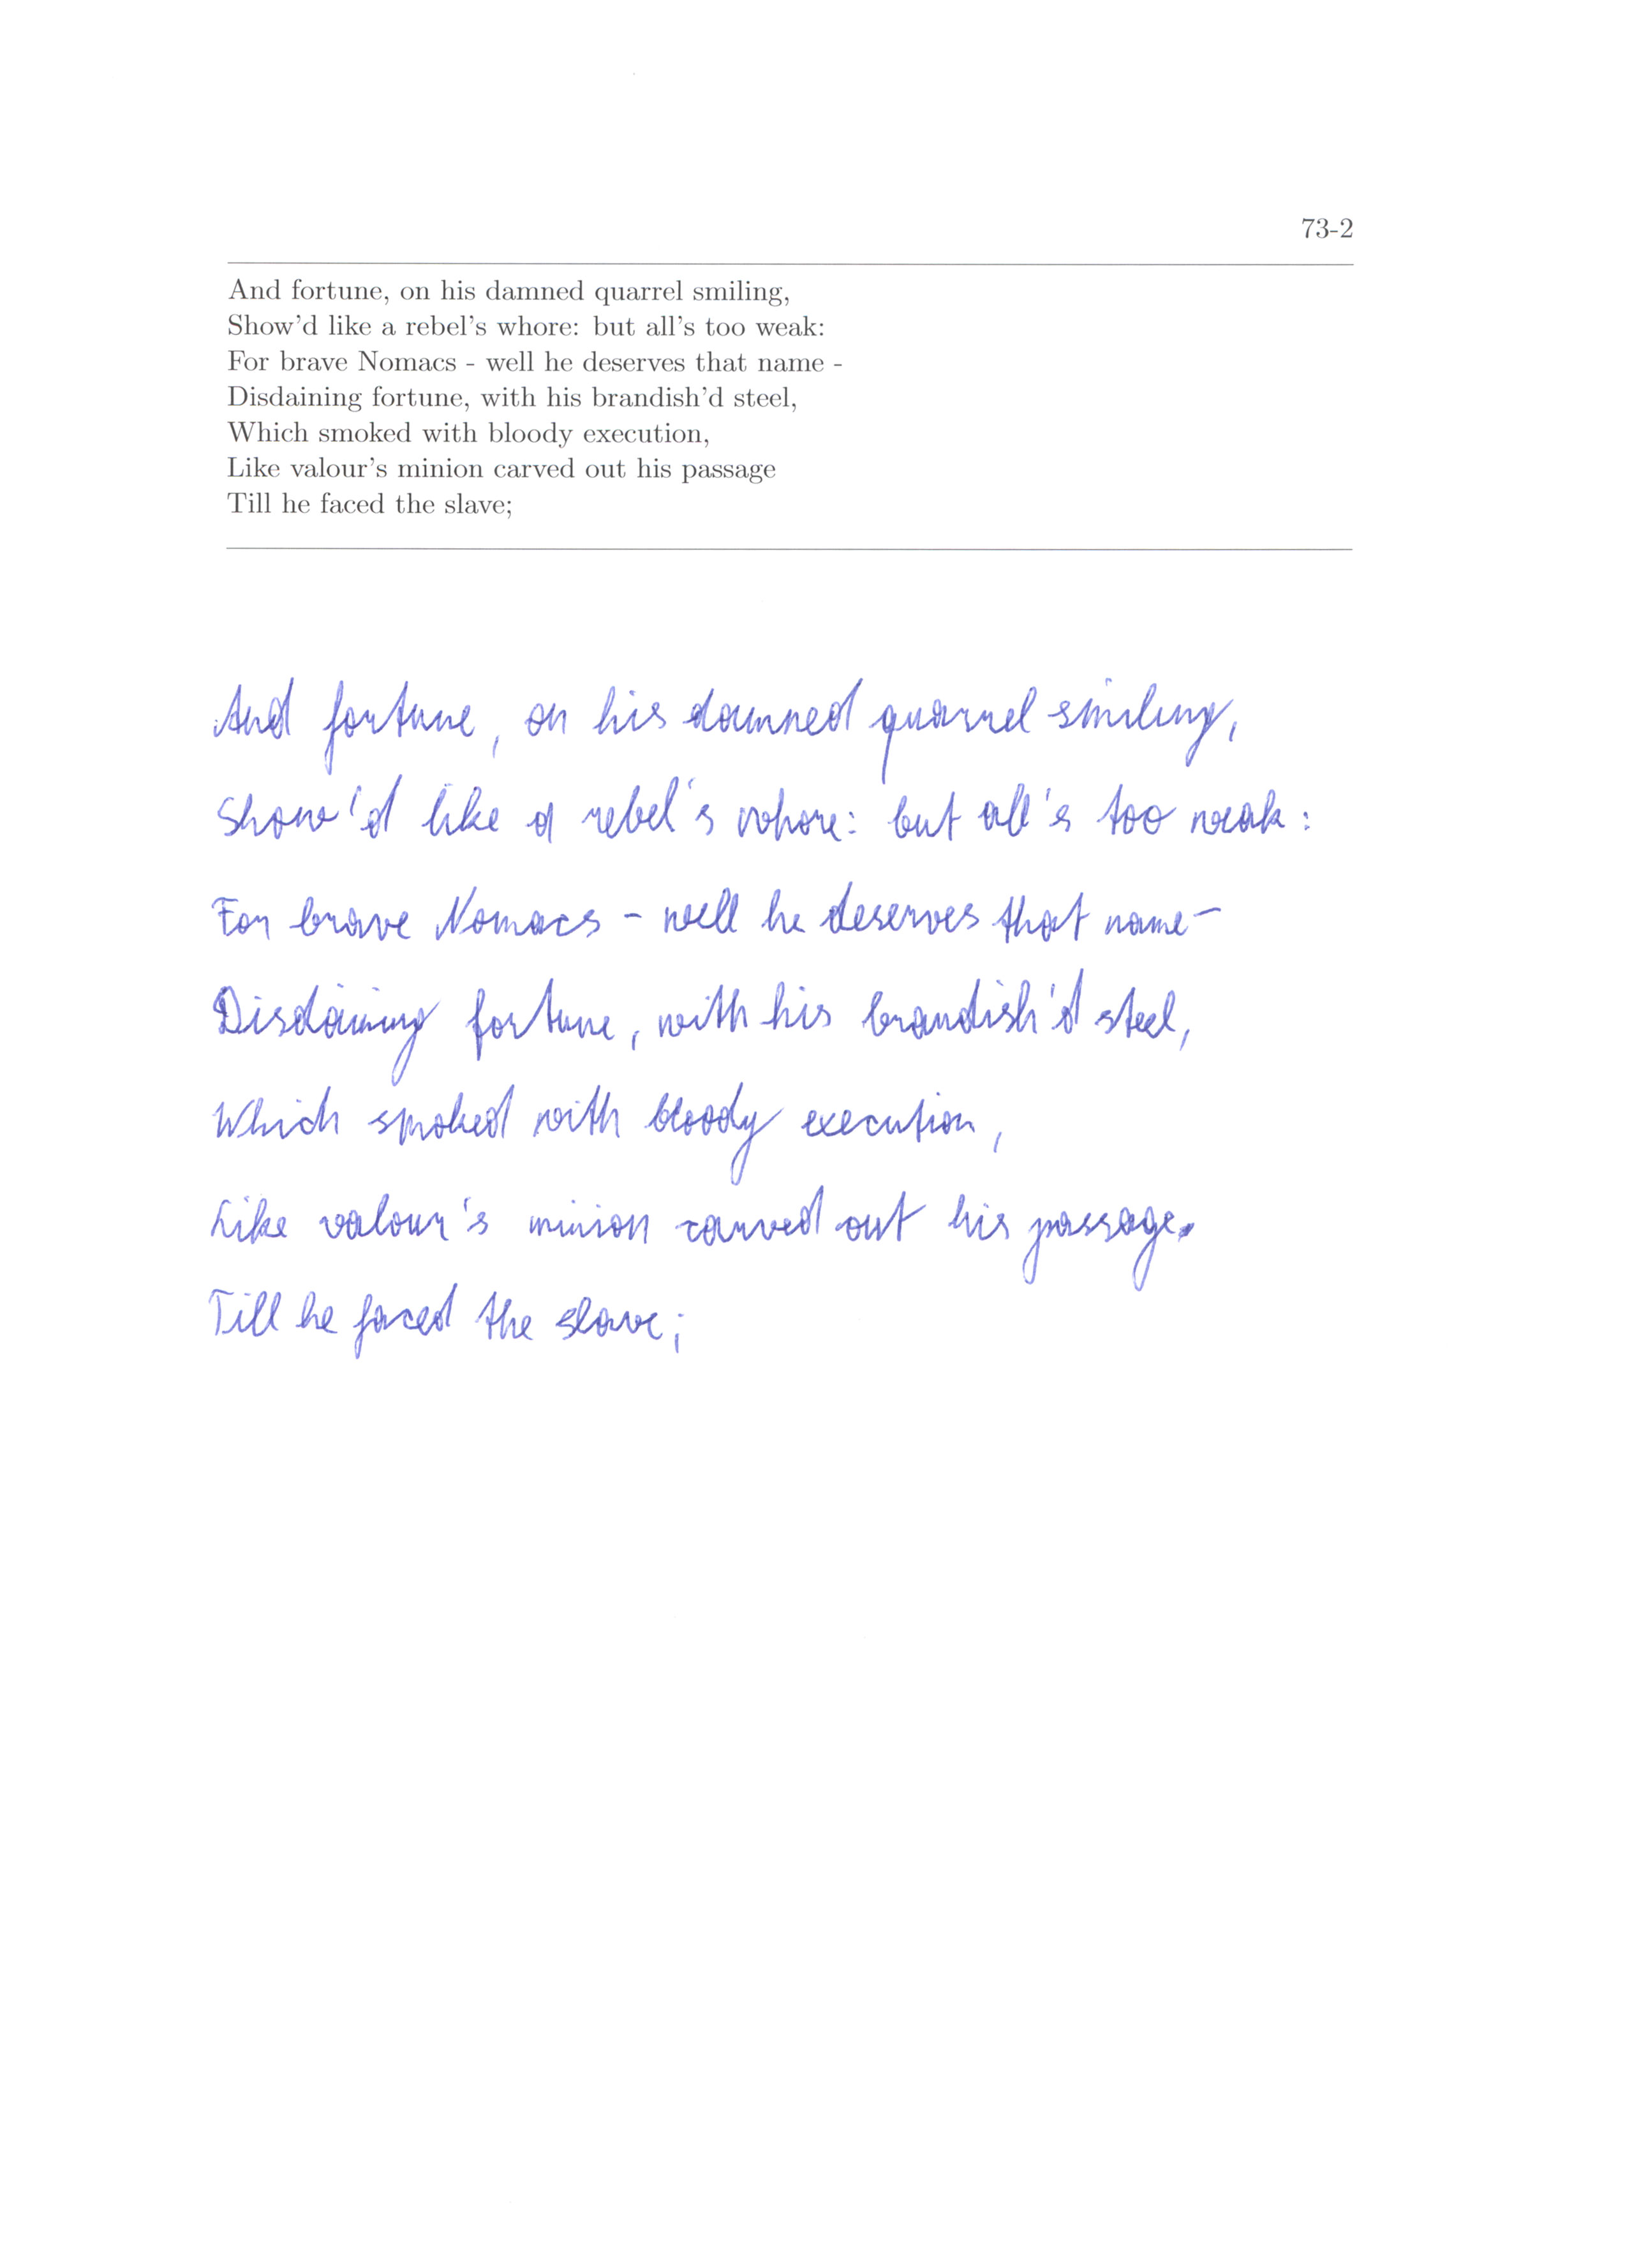 73-2
And fortune, on his damned quarrel smiling,
Show'd like a rebel's whore: but all's too weak:
For brave Nomacs - well he deserves that name -
Disdaining fortune, with his brandish'd steel,
Which smoked with bloody execution,
Like valour's minion carved out his passage
Till he faced the slave;
And fortune, on his damned quarrel smiling,
Show'd like a rebel's whore: but all's too weak:
For brave Nomacs - well he deserves that name -
Disdaining fortune, with his brandish'd steel,
Which smoked with bloody execution,
Like valour's minion carved out his passage.
Till he faced the slave;